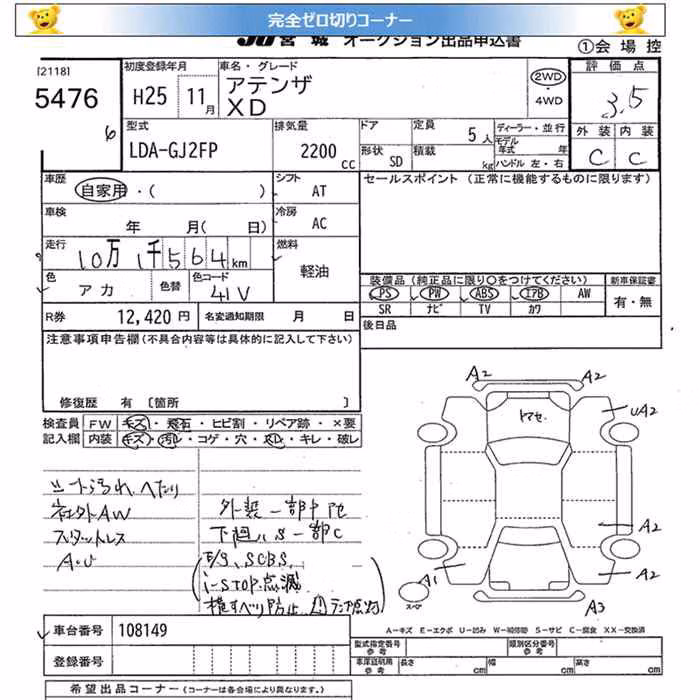 完全ゼロ切りコーナー
JU宮城 オークション出品申込書
①会場控
[2118]
5476
6
初度登録年月
H25 11月
車名・グレード
アテンザ
XD
2WD
・
4WD
評価点
3.5
外装 内装
C C
型式
LDA-GJ2FP
排気量
2200cc
ドア
形状 SD
定員 5人
積載 kg
ディーラー・並行
モデル年式 年
ハンドル 左・右
車歴
自家用・( )
シフト AT
セールスポイント (正常に機能するものに限ります)
車検
年 月( 日)
冷房 AC
走行
10万1千564km
燃料
軽油
色 アカ
色替
色コード
41V
装備品(純正品に限り○をつけてください)
新車保証書
PS PW ABS エアB AW
SR ナビ TV カワ
有・無
R券 12,420円
名変通知期限 月 日
後日品
注意事項申告欄(不具合内容等は具体的に記入して下さい)
修復歴 有 〔箇所 〕
検査員記入欄
FW キズ・飛石・ヒビ割・リペア跡・×要
内装 キズ・汚れ・コゲ・穴・スレ・キレ・破レ
シート汚れ、へたり
社外AW
スタットレス
A・U
外装一部下地
下廻りS一部C
(E/g、SCBS、
i-STOP点滅
横すべり防止 ランプ点灯)
A2
A2
トマセ
UA2
A2
A1
A2
A3
スペア
A-キズ E-エクボ U-凹み W-補修跡 S-サビ C-腐食 XX-交換済
車台番号 108149
登録番号
型式指定番号 参考
類別区分番号 参考
車庫証明用 参考
長さ cm 幅 cm 高さ cm
希望出品コーナー (コーナーは各会場により異なります。)